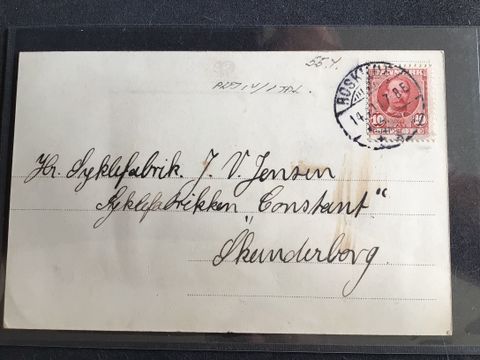 55.Y.
ROSKILDE
14
7.8E
10 10
Hr. Syklefabrik. J. V. Jensen
Syklefabrikken "Constant"
Skanderborg.